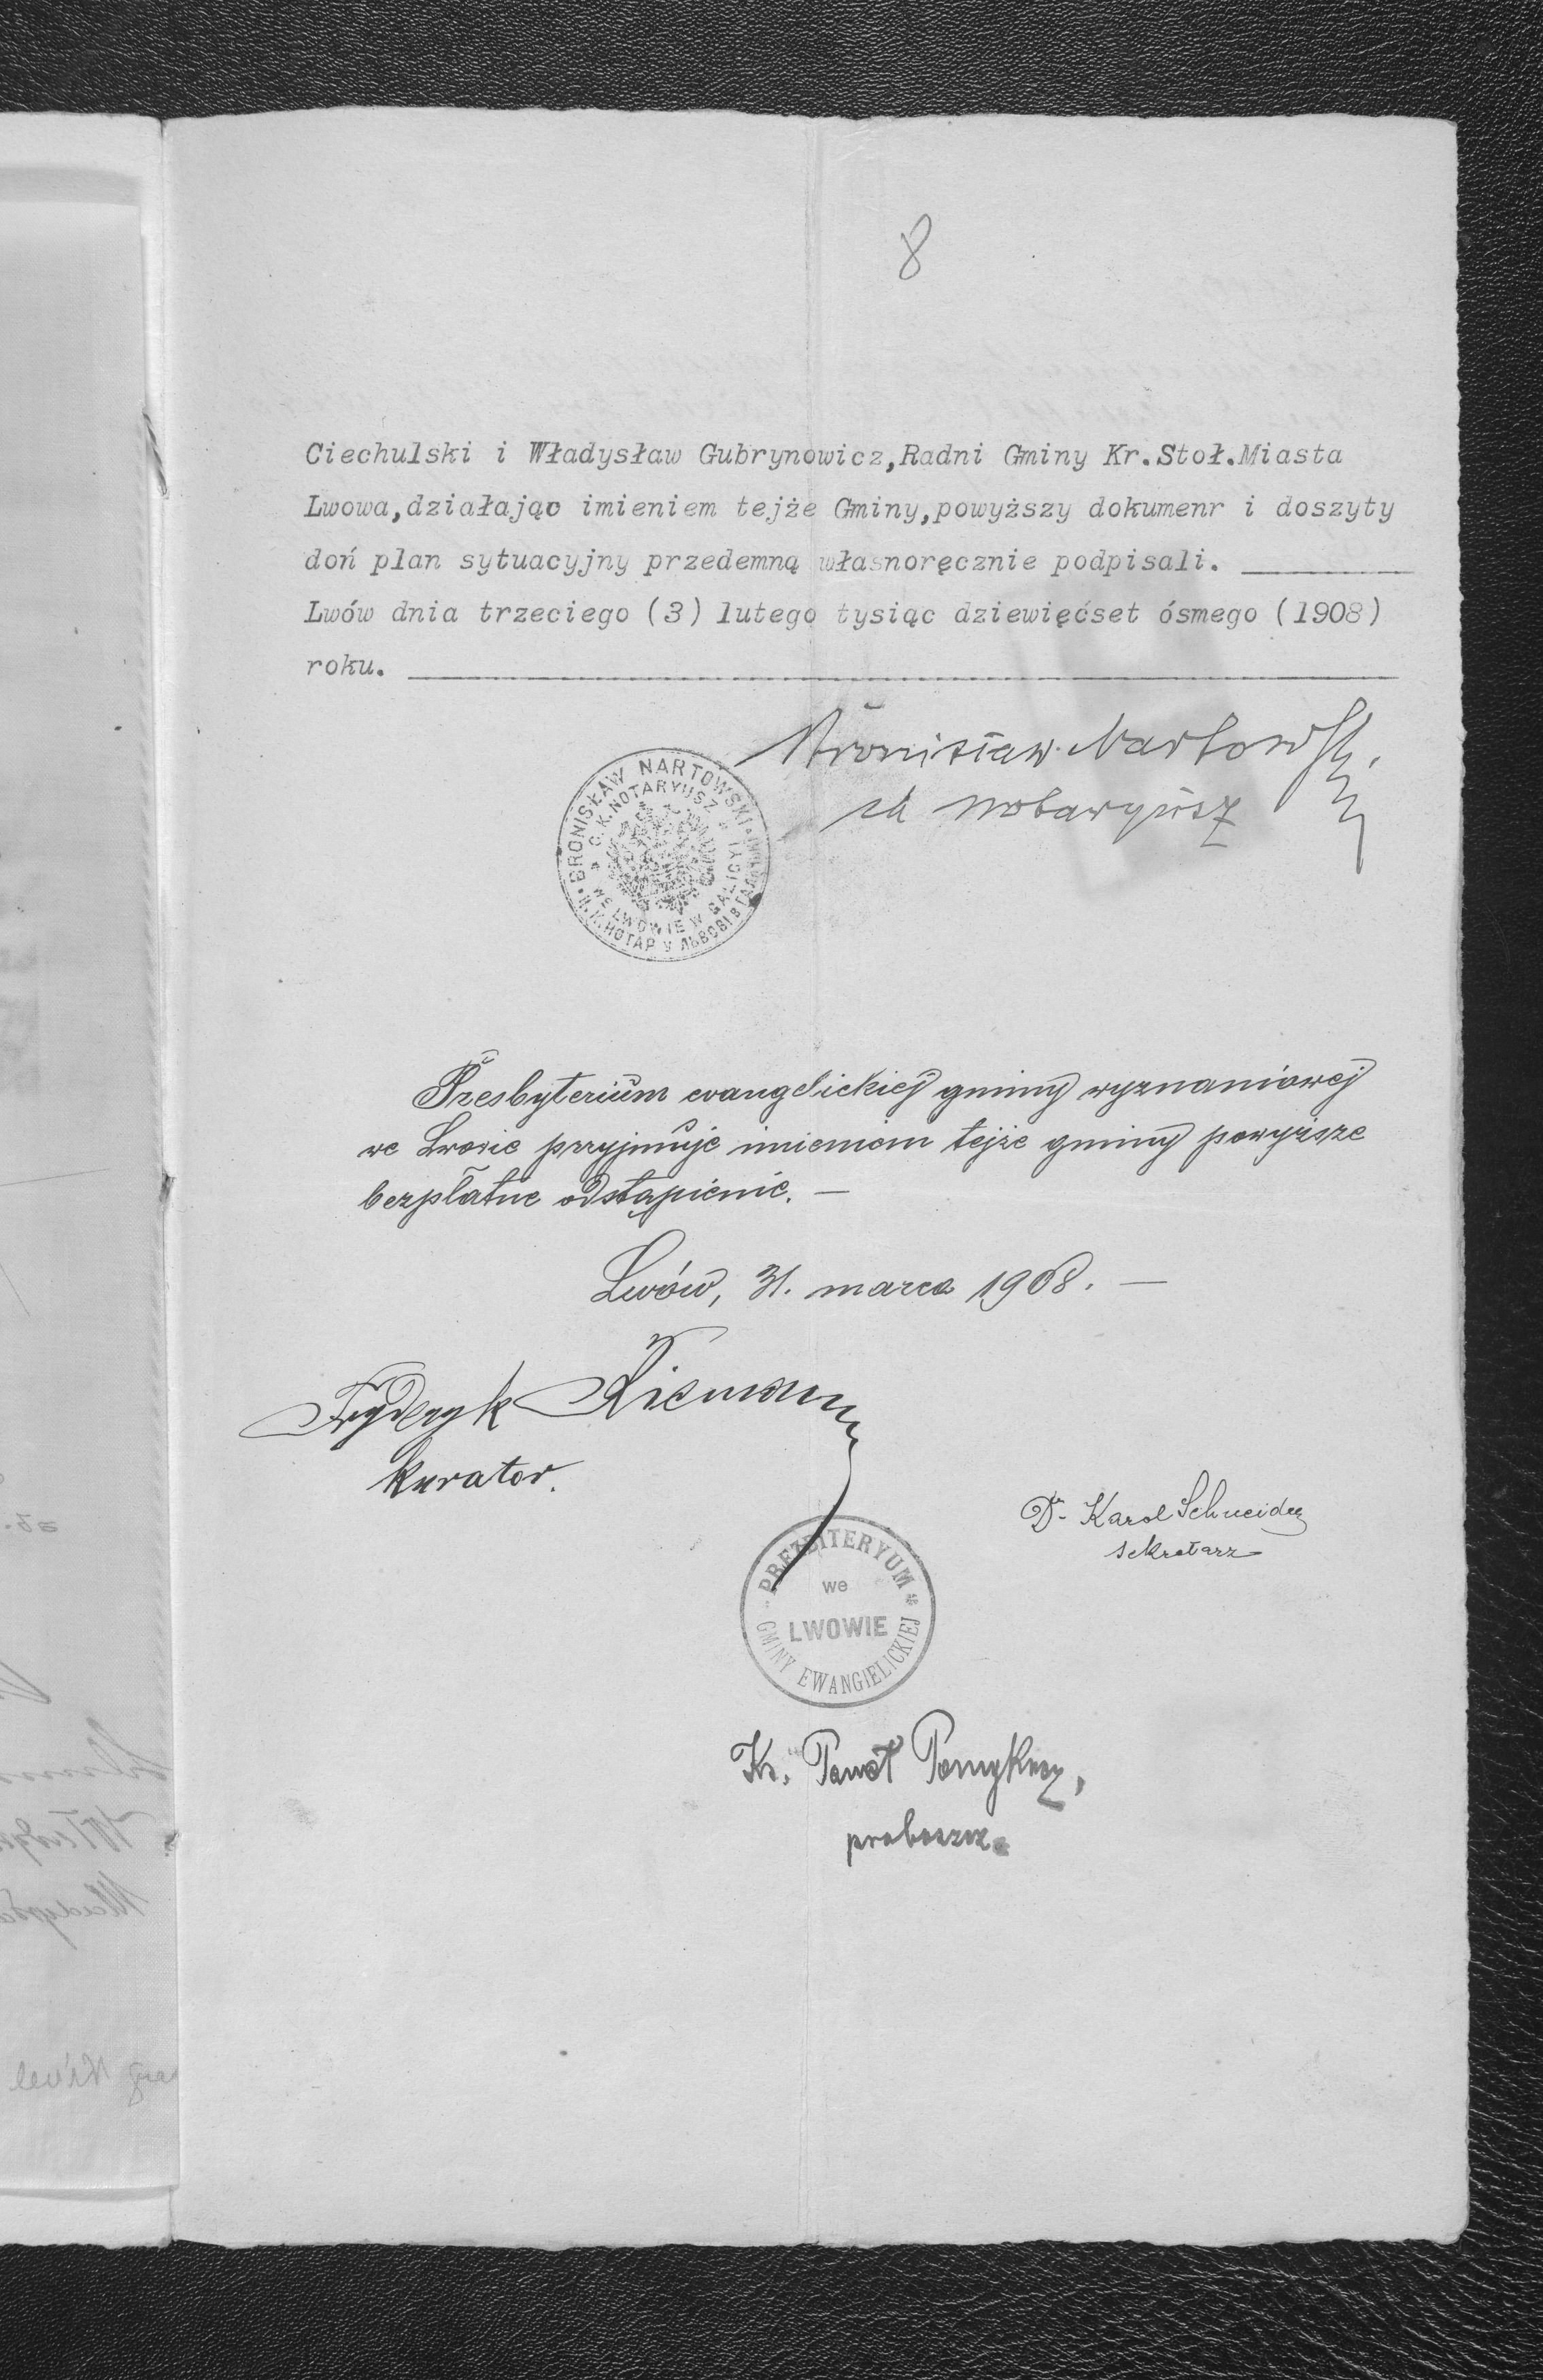 8
Ciechulski i Władysław Gubrynowicz,Radni Gminy Kr.Stoł.Miasta
Lwowa,działając imieniem tejże Gminy,powyższy dokumenr i doszyty
doń plan sytuacyjny przedemną własnoręcznie podpisali.
Lwów dnia trzeciego (3) lutego tysiąc dziewięćset ósmego (1908)
roku.
Bronisław Nartowski
ck notaryusz
BRONISŁAW NARTOWSKI
C. K. NOTARYUSZ
WE LWOWIE W GALICYI
Ц. К. НОТАР У ЛЬВОВІ В
Presbyterium evangelickiej gminy wyznaniowej
we Lwowie przyjmuje imieniem tejże gminy powyższe
bezpłatne odstąpienie. —
Lwów, 31. marca 1908. —
Fryderyk
Kurator.
Dr Karol Schneider
sekretarz
PREZBITERYUM
we
LWOWIE
GMINY EWANGIELICKIEJ
Ks. Paweł
proboszcz.